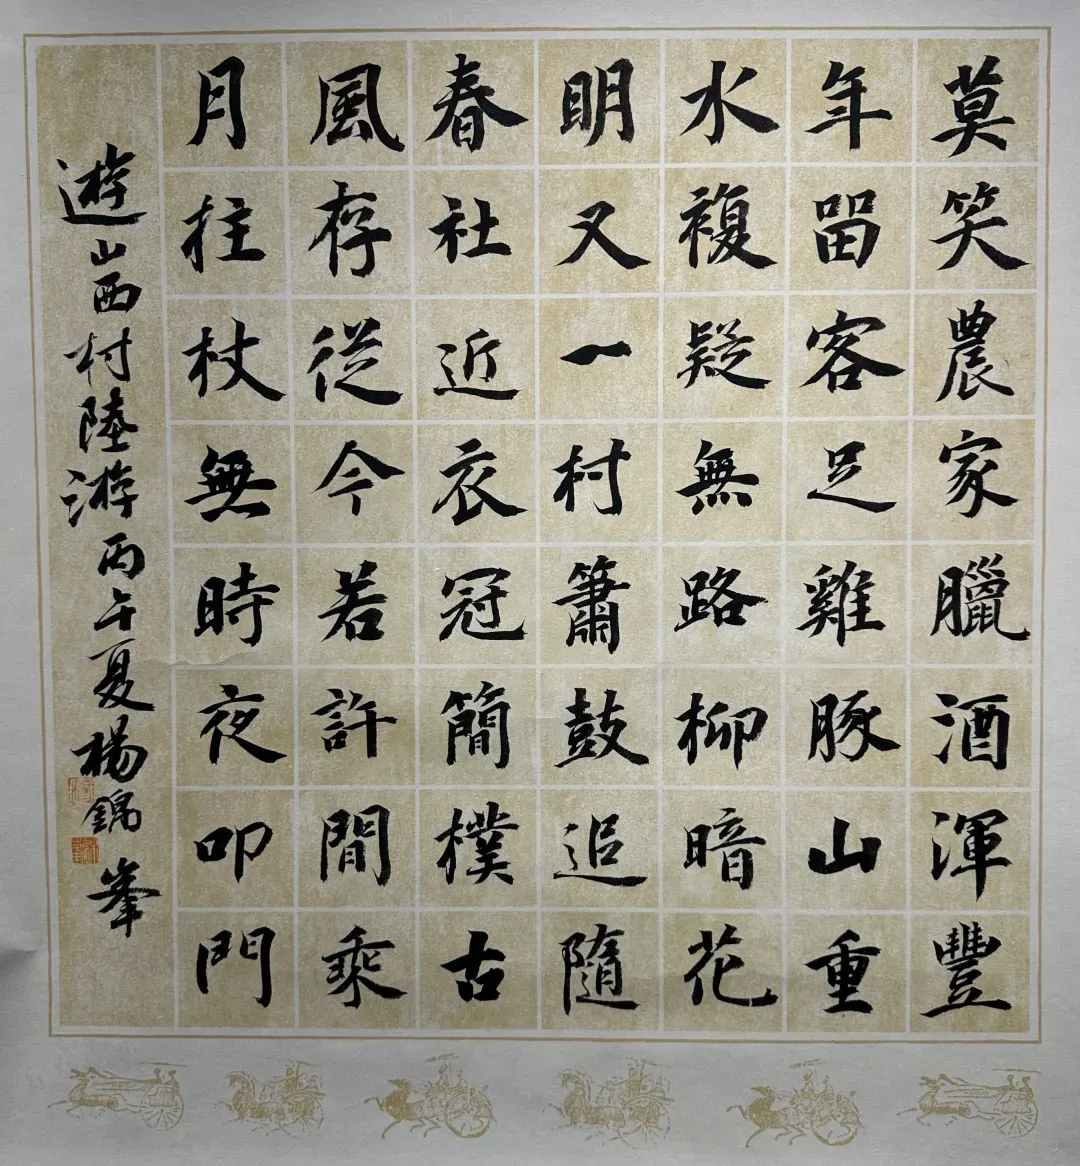 莫笑農家臘酒渾豐
年留客足雞豚山重
水複疑無路柳暗花
明又一村簫鼓追隨
春社近衣冠簡樸古
風存從今若許閒乘
月拄杖無時夜叩門
遊山西村陸游丙午夏楊錦峯